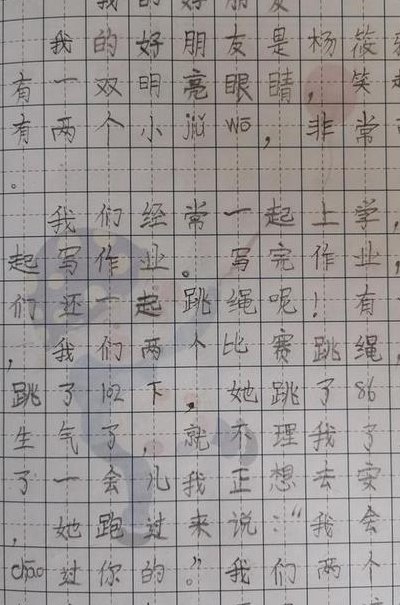 我的好朋友
我的好朋友是杨筱
有一双明亮眼睛，笑起
有两个小jiǔ wō，非常
。
我们经常一起上学，
起写作业。写完作业，
们还一起跳绳呢！有一
，我们两个比赛跳绳，
跳了102下，她跳了86
生气了，就不理我了
了一会儿我正想去安
，她跑过来说：“我会
chāo过你的。”我们两个